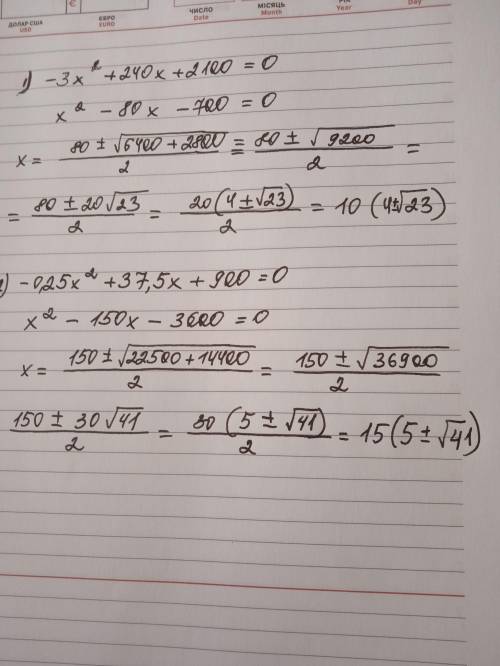 ДОЛАР США USD
€
ЄВРО EURO
ЧИСЛО Date
МІСЯЦЬ Month
РІК Year
Day
1) -3x² + 240x + 2100 = 0
x² - 80x - 700 = 0
x = (80 ± √(6400 + 2800))/2 = (80 ± √9200)/2 =
= (80 ± 20√23)/2 = 20(4 ± √23)/2 = 10(4 ± √23)
) -0,25x² + 37,5x + 900 = 0
x² - 150x - 3600 = 0
x = (150 ± √(22500 + 14400))/2 = (150 ± √36900)/2
(150 ± 30√41)/2 = 30(5 ± √41)/2 = 15(5 ± √41)